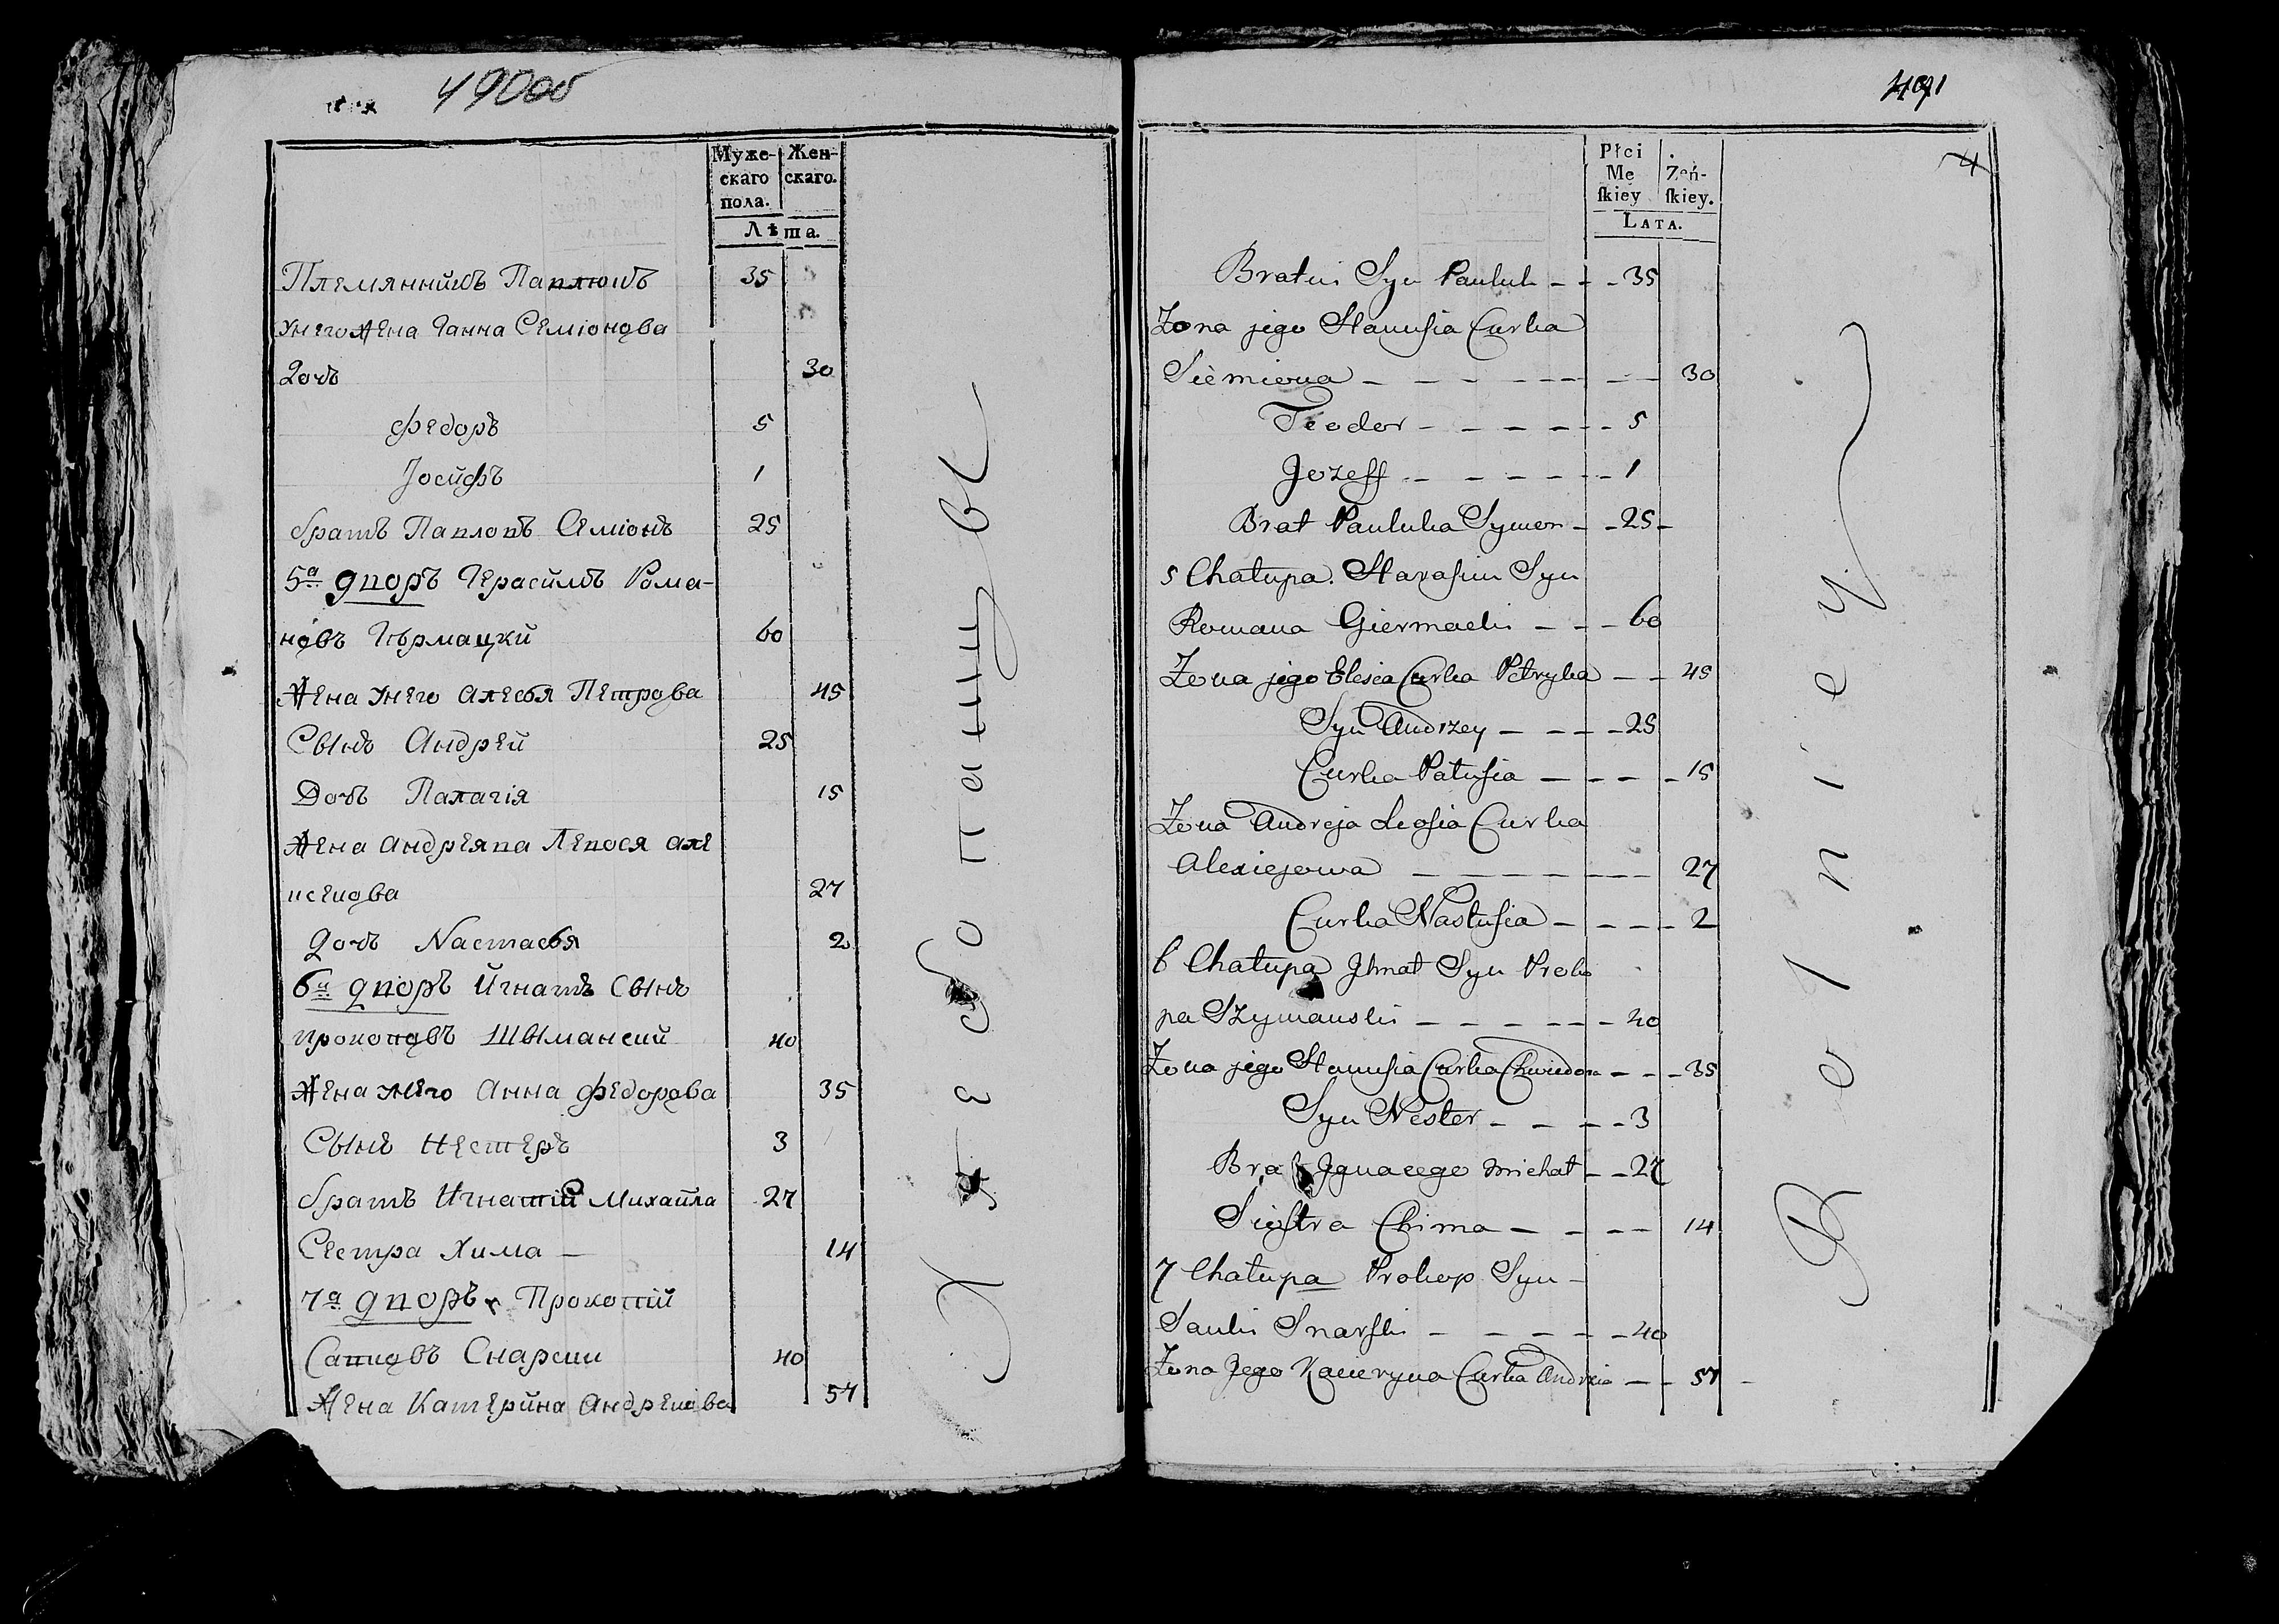 490об
Муже-
скаго
пола.
Жен-
скаго.
Лѣта.
Племянникъ Павлюкъ 35
унего жена Ганна Семіонова
дочь 30
Федоръ 5
Іосифъ 1
братъ Павлюкъ Семіонъ 25
5а дворъ Герасимъ Рома-
новъ Гермацки 60
Жена унего Алесья Петрова 45
Сынъ Андрей 25
Дочь Палагія 15
Жена Андреява Левося Але
ксеиова 27
дочь Настасья 2
6й дворъ Игнатъ Сынъ
Прокоповъ Шыманский 40
Жена унего Анна Федорова 35
Сынъ Нестеръ 3
братъ Игнатій Михайла 27
Сестра Хима — 14
7а дворъ Прокопій
Савковъ Снарски 40
Жена Катерина Андреиова 57
Хлебопашцы
491
4
Płci
Mę
skiey
Żeń-
skiey.
LATA.
Bratni Syn Pauluk - - - 35
Zona jego Hanusia Curka
Siemiona - - - - - - - 30
Teodor - - - - - - 5
Jozeff - - - - - - 1
Brat Pauluka Symon - - 25 -
5 Chatupa. Harasim Syn
Romana Giermacki - - - 60
Zona jego Elesia Curka Petryka - - 45
Syn Andrzey - - - - 25
Curka Patusia - - - - 15
Zona Andreja Leosia Curka
Alexiejowa - - - - - - - - 27
Curka Nastusia - - - - 2
6 Chatupa Jhnat Syn Proko
pa Szymanski - - - - - - 40
Zona jego Hanusia Curka Chwiedora - - - 35
Syn Nester - - - - 3
Brat Ignacego Michat - - 27
Siostra Chima - - - - 14
7 Chatupa Prokop Syn -
Sauki Snarski - - - - - 40
Zona Jego Kacieryna Curka Andreia - - 57 -
Rolniey